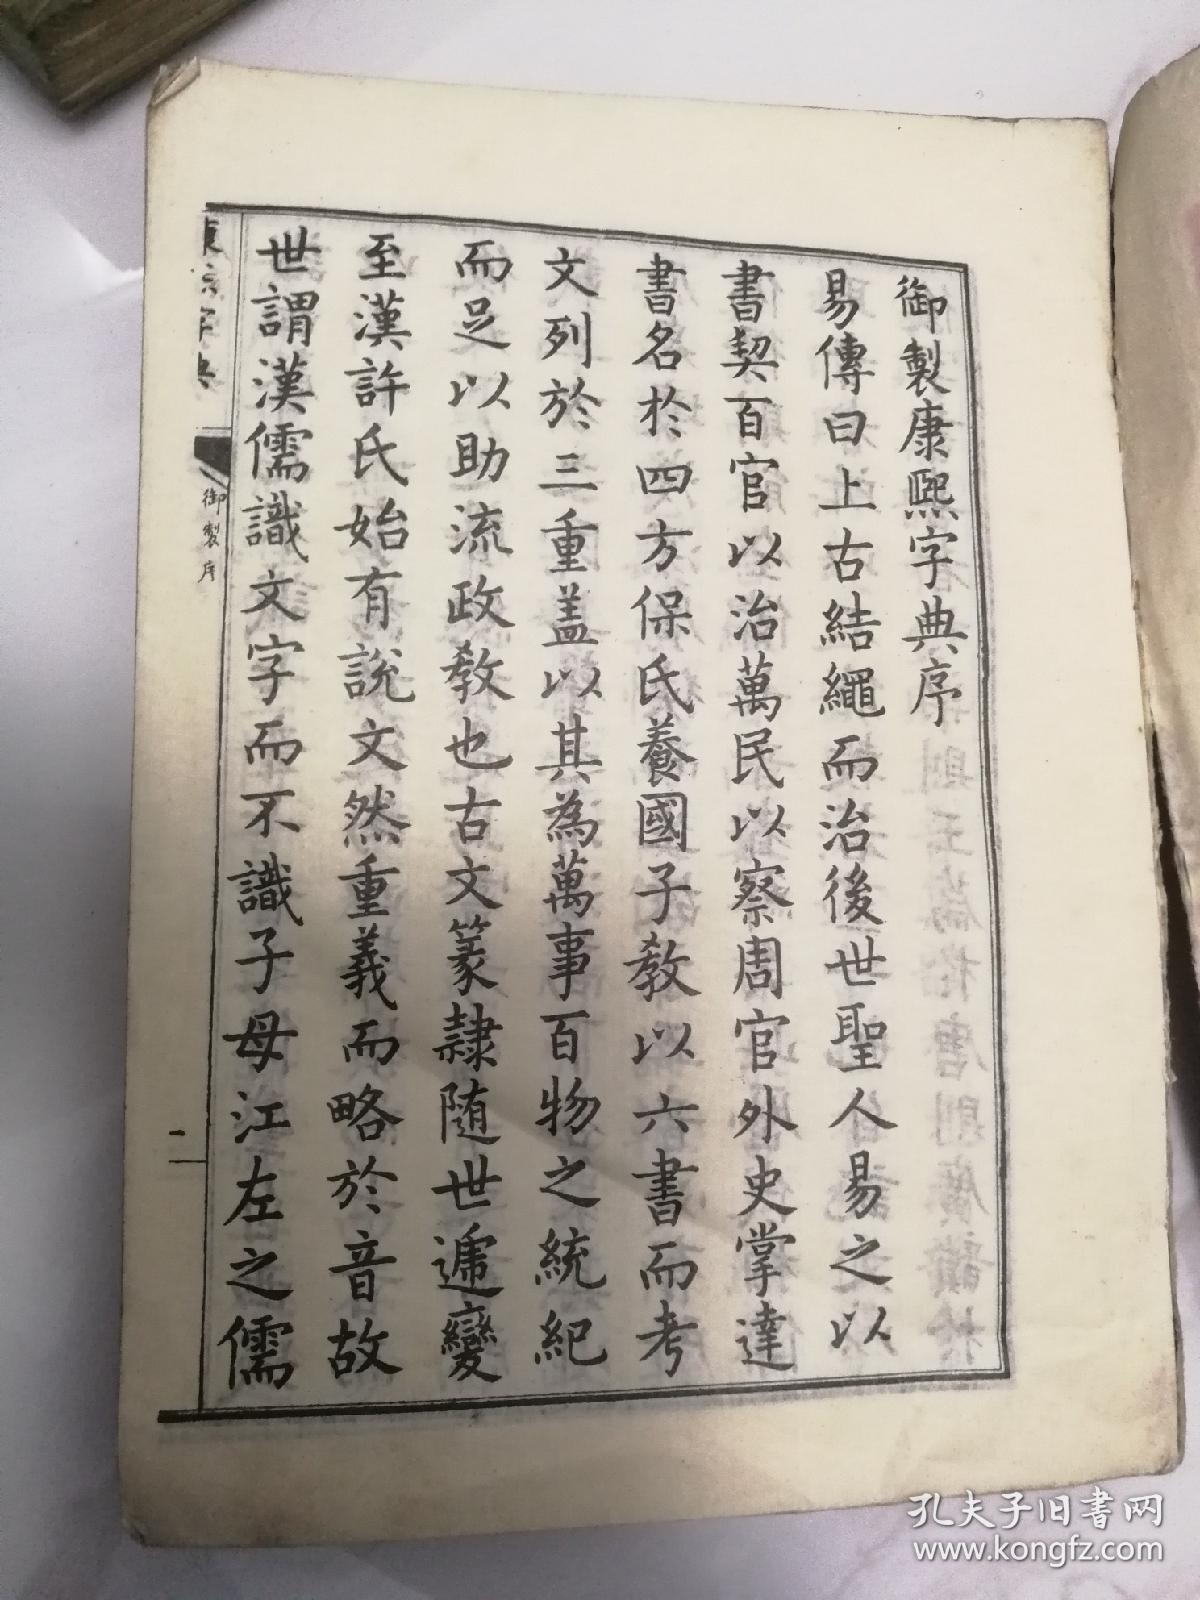 御製康熙字典序
易傳曰上古結繩而治後世聖人易之以
書契百官以治萬民以察周官外史掌達
書名於四方保氏養國子教以六書而考
文列於三重盖以其為萬事百物之統紀
而足以助流政教也古文篆隸随世遞變
至漢許氏始有説文然重義而略於音故
世謂漢儒識文字而不識子母江左之儒
康熙字典
御製序
一
孔夫子旧书网
www.kongfz.com